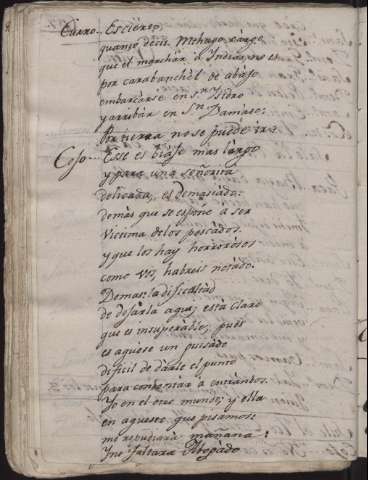 Curro.. Es cierto,
quanto decir me hago cargo
que el marchar à Indias, no es
por carabanchel de abajo
embarcarse en Sn. Isidro
y arribar en Sn. Damaso:
Por tierra no se puede ir?
Coso.. Ese es biaje mas largo
y para una señorita
delicada, es demasiado:
demàs que se espone à ser
victima de los pescados.
y que los hay horrorosos
como vos habreis notado.
Demas: la dificultad
de dejarla aqui; està claro
que es insuperable; pues
es aquese un guisado
dificil de darle el punto
para contentar à entrambos.
Yo en el otro mundo; y ella
en aqueste que pisamos:
me repudiarà mañana:
Ine faltara Abogado